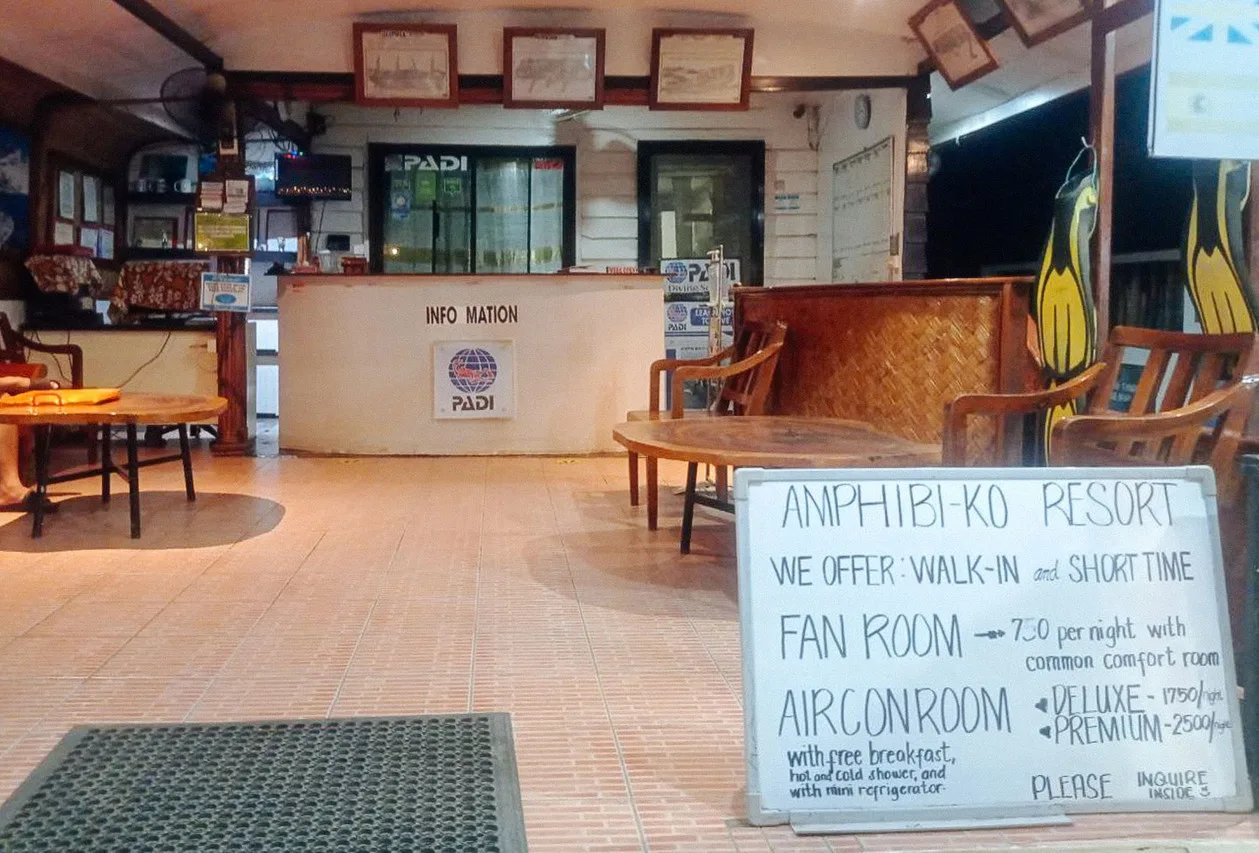 PADI
INFO MATION
PADI
PADI
Diving
PADI
AMPHIBI-KO RESORT
WE OFFER: WALK-IN and SHORT TIME
FAN ROOM → 750 per night with
common comfort room
AIRCON ROOM
DELUXE - 1750/night
PREMIUM - 2500/night
with free breakfast,
hot and cold shower, and
with mini refrigerator
PLEASE INQUIRE
INSIDE